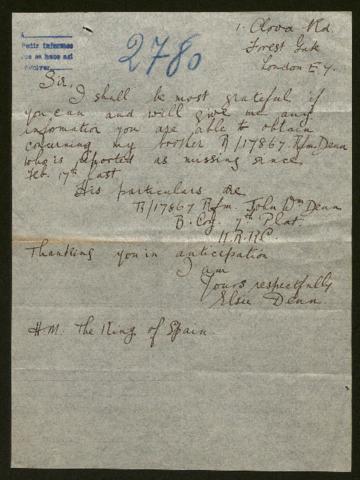 1. Clova Rd
Forest Gate
London E 7.
Pedir informes
2780
Sir,
I shall be most grateful if
you can and will give me any
information you are able to obtain
concerning my brother R/17867. Rfm. Denn
who is reported as missing since
Feb. 17th last.
His particulars are
R/17867 Rfm. John Wm Denn
B. Coy. 7th Plat.
K.R.R.C.
Thanking you in anticipation
I am
Yours respectfully
Elsie Denn
H.M. The King of Spain